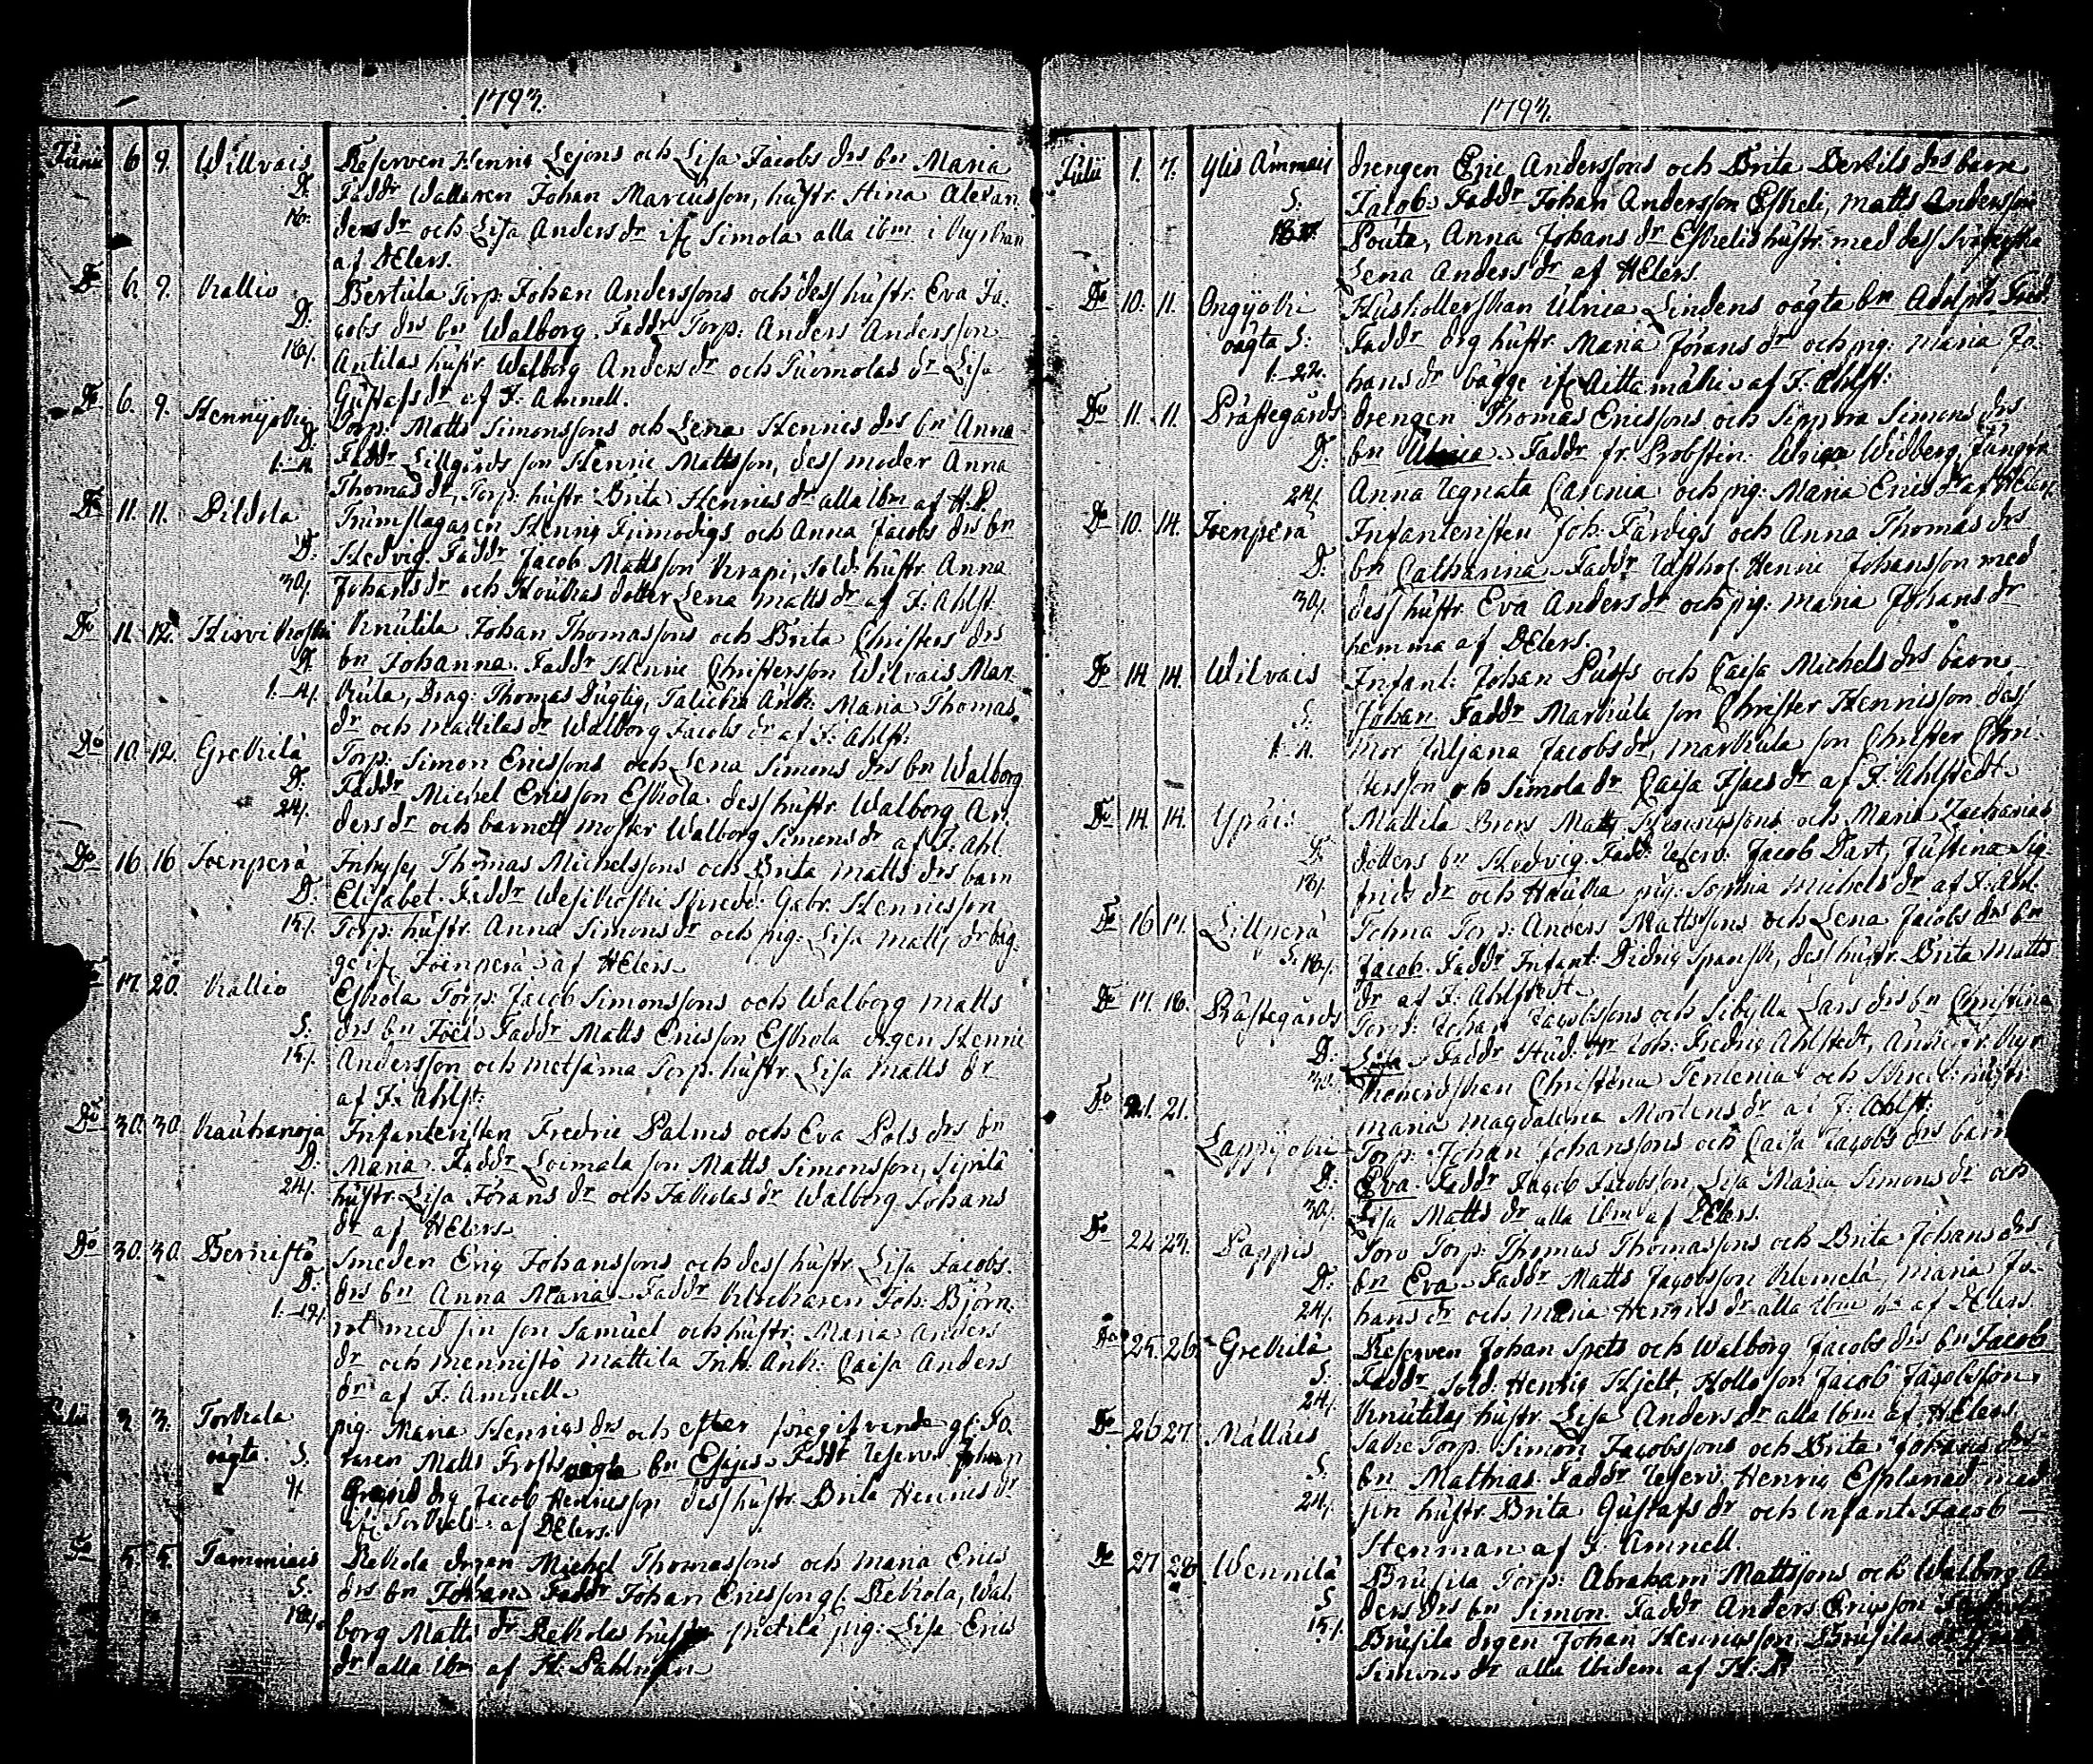 1793.
Junii 6. 9. Willvais Reserven Henric Lejons och Lisa Jacobs drs bn Maria
D. Faddr Wallaren Johan Marcusson, hustr. Stina Alexan
ders dr och Lisa Anders dr Simola alla ibm i
af DElers.
Do 6. 9. Kallio Bertula Torp: Johan Anderssons och dess hustr. Eva Ja-
D. cobs drs bn Walborg. Faddr Torp: Anders Andersson
Antilas hustr. Walborg Anders dr och Tuomolas dr Lisa
Gustafs dr af J. Amnell.
Do 6. 9. Hennijoki Torp: Matts Simonssons och Lena Henrics drs bn Anna
D. Faddr Lillgårds son Henric Mattsson, dess moder Anna
Thomas dr, Torp: hustr. Brita Henrics dr alla ibm af H.P.
Do 11. 11. Pildola Trumslagaren Henric Finnodigs och Anna Jacobs drs bn
D. Hedvig. Faddr Jacob Mattsson Krapi, Sold: hustr. Anna
30/. Johans dr och Houkas dotter Lena Matts dr af J: Ahlst.
Do 11. 12. Hirvikoski Knutila Johan Thomassons och Brita Christers drs
D. bn Johanna. Faddr Henric Christersson Wilvais Mar-
kula, Drag: Thomas Dugtig, Änk: Maria Thomas
dr och Mattilas dr Walborg Jacobs dr af J: Ahlst:
Do 10. 12. Grekilä Torp: Simon Ericssons och Lena Simons drs bn Walborg
D. Faddr Michel Ericsson Eskola dess hustr. Walborg An-
24/. ders dr och barnets moster Walborg Simons dr af J. Ahl.
Do 16 16 Joenperä Inhyses Thomas Michelssons och Brita Matts drs barn
D. Elisabet. Faddr Wesikoski Skredd: Gabr. Henricsson
15/. Torp: hustr. Anna Simons dr och pig: Lisa Matts dr båg-
ge if Joenperä af HElers
17. 20. Kallio Eskola Torp: Jacob Simonssons och Walborg Matts
S. drs bn Joel. Faddr Matts Ericsson Eskola drgen Henric
15/. Andersson och Metsäma Torp. hustr. Lisa Matts dr
af J. Ahlst:
Do 30. 30. Kauhanoja Infanteristen Fredric Palms och Eva Pols drs bn
D. Maria. Faddr Loimala son Matts Simonsson, Sipilä
24/. hustr. Lisa Jörans dr och Jakolas dr Walborg Johans
dr af HElers.
Do 30. 30. Bernistö Smeden Eric Johanssons och dess hustr. Lisa Jacobs
D. drs bn Anna Maria. Faddr Klockaren Joh: Björn-
rot med sin son Samuel och hustr. Maria Anders
dr och Mennistö Mattila Inh. Änk: Caisa Anders
dr af J: Amnell.
3. 3. Torkkala pig. Maria Henrics drs och efter föregifvande gl: Fo-
oägta S. raren Matts Frosts oägta bn Esajas. Faddr Reserv: Johan
9. drg Jacob Henricsson dess hustr. Brita Henrics dr
af DElers.
Do 5. 5. Tammiais Rekola drgen Michel Thomassons och Maria Erics
S. drs bn Johan. Faddr Johan Ericsson gl. Rekola, Wal-
borg Matts dr Rekolas hustr pietilä pig: Lisa Erics
dr alla ibm af H: Påhlman
1793.
Julii 1. 7. Ylis Ämmais drengen Eric Anderssons och Brita Bertils drs barn
S. Jacob. Faddr Johan Andersson Eskeli, Matts Andersson
Pouta, Anna Johans dr Eskelis hustr. med dess
Lena Anders dr af HElers.
Do 10. 11. Ongijoki Hushollerskan Ulrica Lindens oägta bn Adolph Fred.
oägta S: Faddr drg hustr. Maria Jörans dr och pig: Maria Jo-
1.-22. hans dr bägge if Aittamäki af J. Ahlst:
Do 11. 11. Prästegårds drengen Thomas Ericssons och Sippora Simons drs
D. bn Ulrica. Faddr fr. Probstin: Ulrica Widberg, Jungfr
24/. Anna Regnata Casenia och pig: Maria Erics dr af HElers
Do 10. 14. Joenperä Infanteristen Joh: Färdigs och Anna Thomas drs
D. bn Catharina. Faddr Rusth: Henric Johansson med
30/. dess hustr. Eva Anders dr och pig: Maria Johans dr
hemma af DElers.
Do 14. 14. Wilvais Infant: Johan Pusts och Caisa Michels drs barn
S. Johan. Faddr Markula son Christer Henricsson dess
mor Juljana Jacobs dr, Markula son Christer Chri-
stersson och Simola dr Caisa Isacs dr af J: Ahlstedt.
Do 14. 14. Ypäis Mattila Brors Matts Henricssons och Maria Zacharias
D. dotters bn Hedvig. Fadd: Reserv: Jacob Dart, Justina Sig-
18/. frids dr och Haukka pig: Sophia Michels dr af J: Ahl.
Do 16 17. Lillperä Tohna Torp: Anders Mattssons och Lena Jacobs drs bn
S. 18/. Jacob. Faddr Infant: Didric Spansk, dess hustr. Brita Matts
dr af J: Ahlstedt.
Do 17. 18. Prästegårds Torp: Johan Jacobssons och Sibylla Lars drs bn Christina
D. Lisa. Faddr Stud: Hr Joh: Fredric Ahlstedt, Änkefr. Kyr-
30. koherdskan Christina Tentenia och Skredd: hustr
Maria Magdalena Mortens dr af J: Ahlst:
Do 21. 21. Lappijoki Torp: Johan Johanssons och Caisa Jacobs drs barn
D. Eva. Faddr Jacob Jacobsson Lisa Maria Simons dr och
30/. Lisa Matts dr alla ibm af DElers.
Do 24 24. Pappis Torp: Thomas Thomassons och Brita Johans drs
D. bn Eva. Faddr Matts Jacobsson Klemelä, Maria Jo-
24/. hans dr och Maria Henrics dr alla ibm af DElers.
Do 25. 26. Grekilä Reserven Johan Spets och Walborg Jacobs drs bn Jacob
S. Faddr Sold: Henric Hjelt, Hollo son Jacob Jacobsson,
24/. Knutilas hustr. Lisa Anders dr alla ibm af HElers.
Do 26 27. Mälläis Torp. Simon Jacobssons och Brita Johans drs
S. bn Mathias Faddr Reserv: Henric Esplanad med
24/. sin hustr. Brita Gustafs dr och Infant: Jacob
Stenman af J. Amnell.
Do 27 28 Wennilä Brusila Torp: Abraham Mattssons och Walborg An
S ders drs bn Simon. Faddr Anders Ericsson
15/. Brusila drgen Johan Henricsson, Brusilas
Simons dr alla ibidem af H: P.